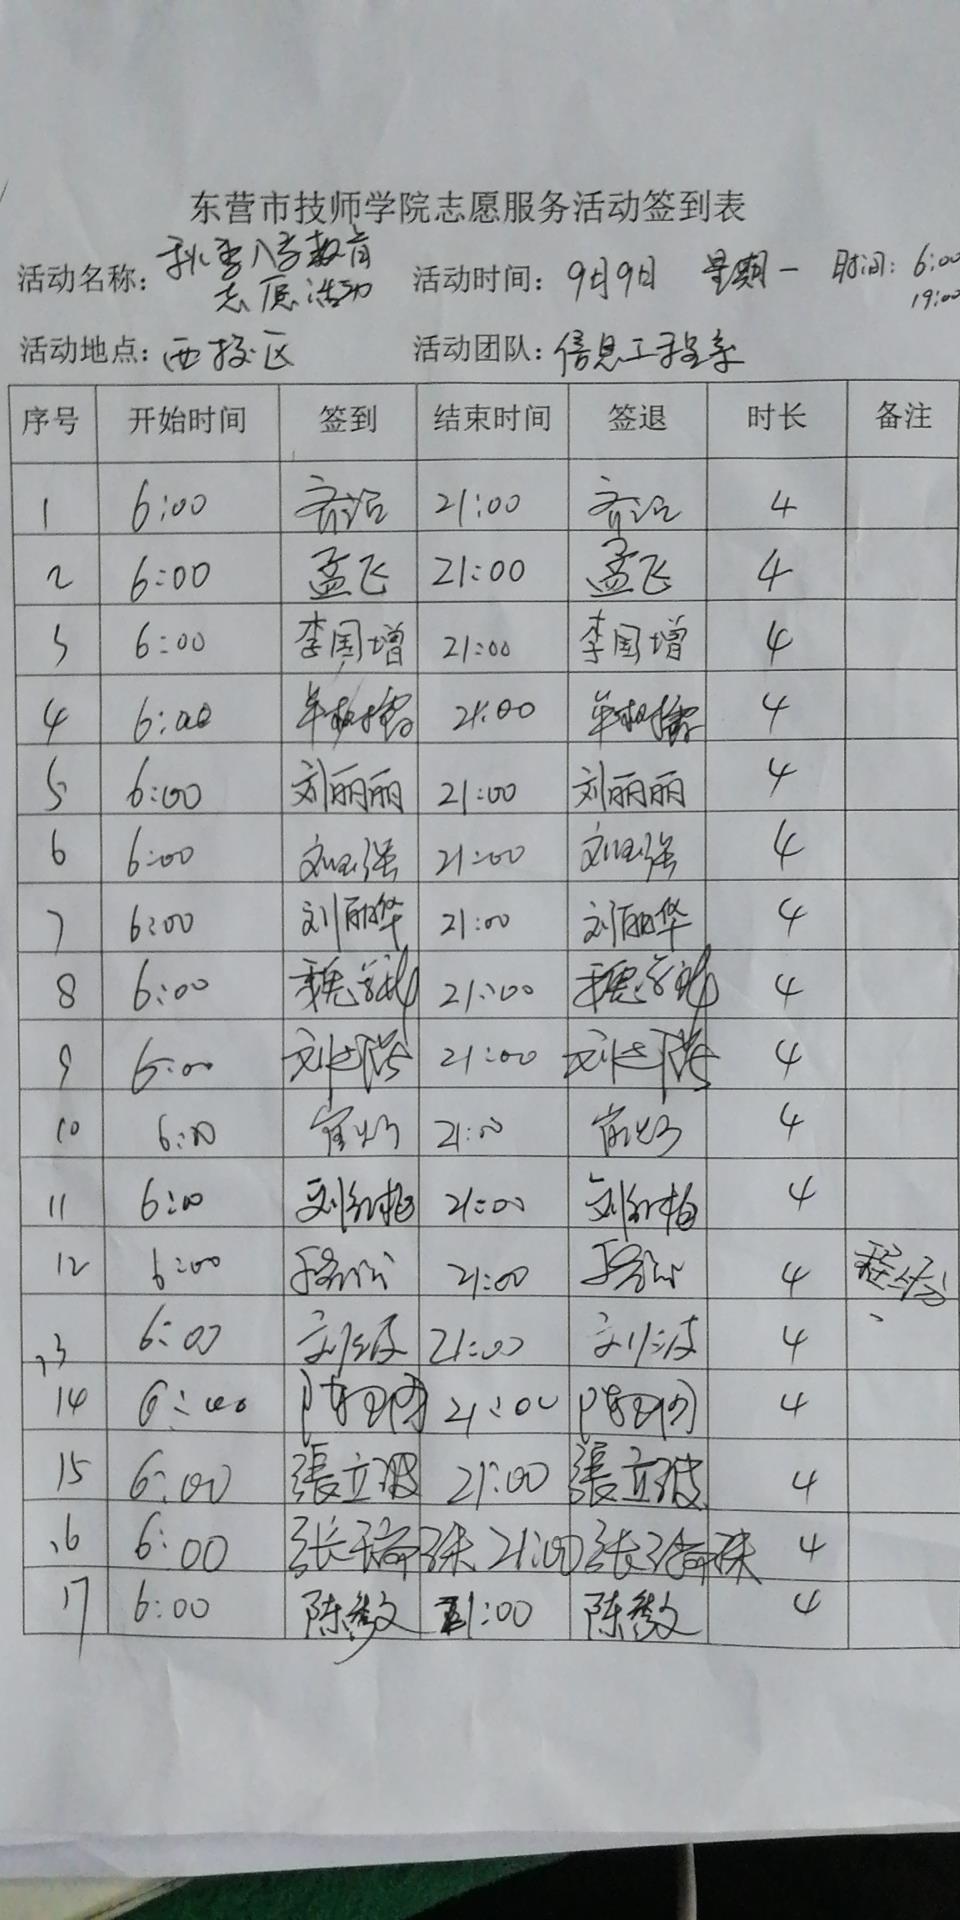 东营市技师学院志愿服务活动签到表
活动名称: 秋季入学教育 活动时间: 9月9日 星期一 时间: 6:00
志愿活动 19:00
活动地点: 西校区 活动团队: 信息工程系
序号 开始时间 签到 结束时间 签退 时长 备注
1 6:00 21:00 4
2 6:00 孟飞 21:00 孟飞 4
3 6:00 李国增 21:00 李国增 4
4 6:00 21:00 4
5 6:00 刘丽丽 21:00 刘丽丽 4
6 6:00 刘玉强 21:00 刘玉强 4
7 6:00 刘丽华 21:00 刘丽华 4
8 6:00 魏 21:00 魏 4
9 6:00 刘 21:00 刘 4
10 6:00 21:00 4
11 6:00 刘 21:00 刘 4
12 6:00 21:00 4
13 6:00 刘 21:00 刘 4
14 6:00 陈 21:00 陈 4
15 6:00 張立波 21:00 張立波 4
16 6:00 张瑜珠 21:00 张瑜珠 4
17 6:00 陈 21:00 陈 4